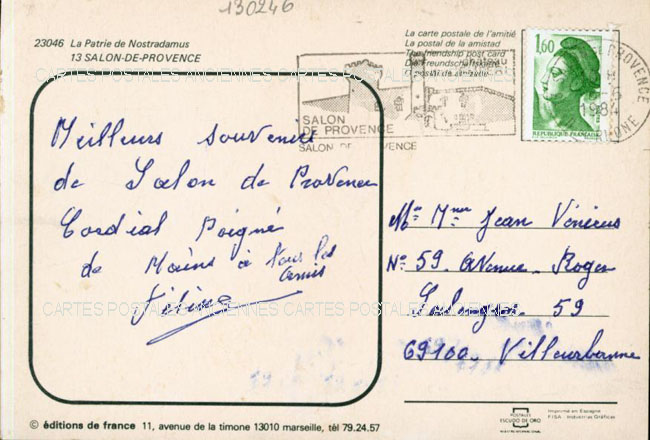 130246
23046 La Patrie de Nostradamus
13 SALON-DE-PROVENCE
La carte postale de l'amitié
La postal de la amistad
The friendship post card
Die Freundschaftskarte
château
SALON
DE PROVENCE
SALON DE PROVENCE
1,60
REPUBLIQUE FRANÇAISE
PROVENCE
1984
Meilleurs souvenirs
de Salon de Provence
Cordial Poigné
de Mains à tous les
amis
Mr Mme Jean Vénicus
N° 59 Avenue Roger
Salengro 59
69100 Villeurbanne
CARTES POSTALES ANCIENNES CARTES POSTALES ANCIENNES
CARTES POSTALES ANCIENNES CARTES POSTALES ANCIENNES
© éditions de france 11, avenue de la timone 13010 marseille, tél 79.24.57
POSTALES
ESCUDO DE ORO
Imprimé en Espagne
FISA - Industrias Gráficas